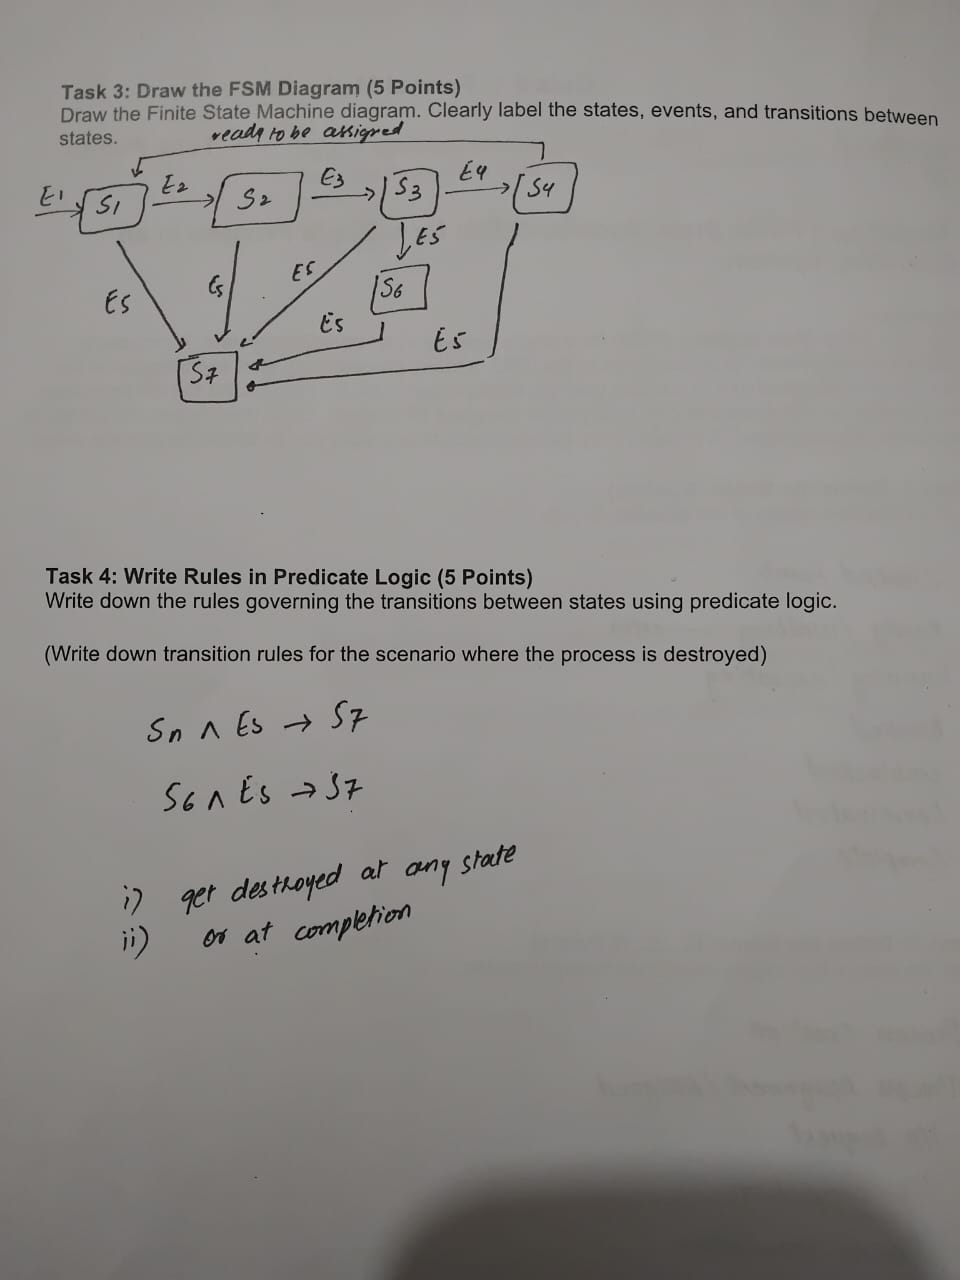 Task 3: Draw the FSM Diagram (5 Points)
Draw the Finite State Machine diagram. Clearly label the states, events, and transitions between
states.
ready to be assigned
E1 S1 E2 S2 E3 S3 E4 S4
E5
E5 E5 E5 S6
E5 E5
S7
Task 4: Write Rules in Predicate Logic (5 Points)
Write down the rules governing the transitions between states using predicate logic.
(Write down transition rules for the scenario where the process is destroyed)
Sn ∧ E5 → S7
S6 ∧ E5 → S7
i) get destroyed at any state
ii) or at completion